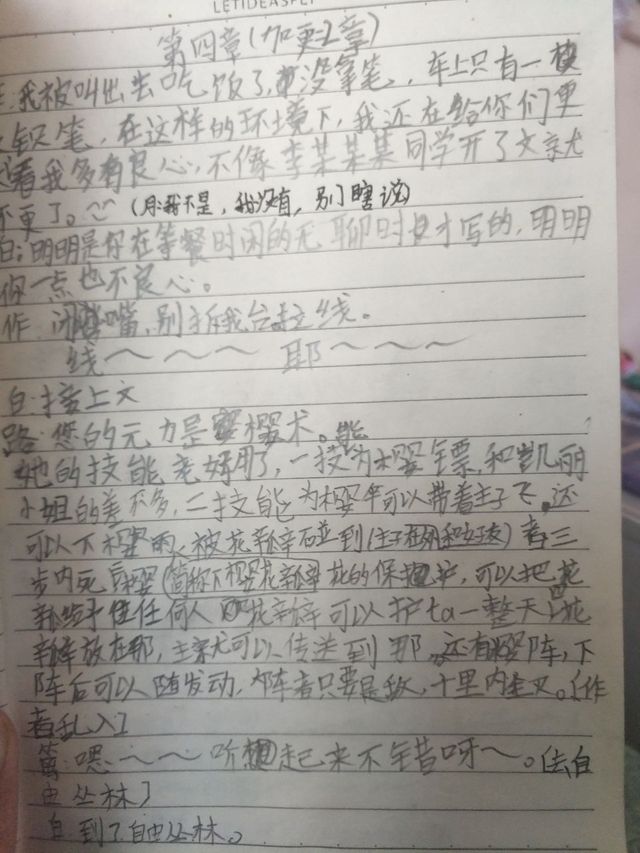 LETIDEASFLY
第四章(加更1章)
我被叫出去吃饭了,没拿笔,车上只有一
铅笔,在这样的环境下,我还在给你们更
看我多有良心,不像李某某某同学开了文就
不更了。(月:我不是,我没有,别瞎说)
白:明明是你在等餐时闲的无聊时才写的,明明
你一点也不良心。
作 闭嘴,别拆我台
线~~~ 耶~~~
白:接上文
路:您的元力是樱术。能
她的技能老好用了,一技为樱镖,和凯丽
小姐的差不多,二技能为樱伞可以带着主子飞,还
可以下樱雨,被花瓣碰到(主子在外和女孩)者三
步内死
(简称下樱花瓣花的保护,可以把花
瓣给任何人 花瓣可以护ta一整天,花
瓣放在那,主就可以传送到那,还有樱阵,下
阵后可以随发动,阵者只要是敌,十里内全灭。[作
者乱入]
嗯~~听起来不错呀~。[去自
由丛林]
白 到了自由丛林。